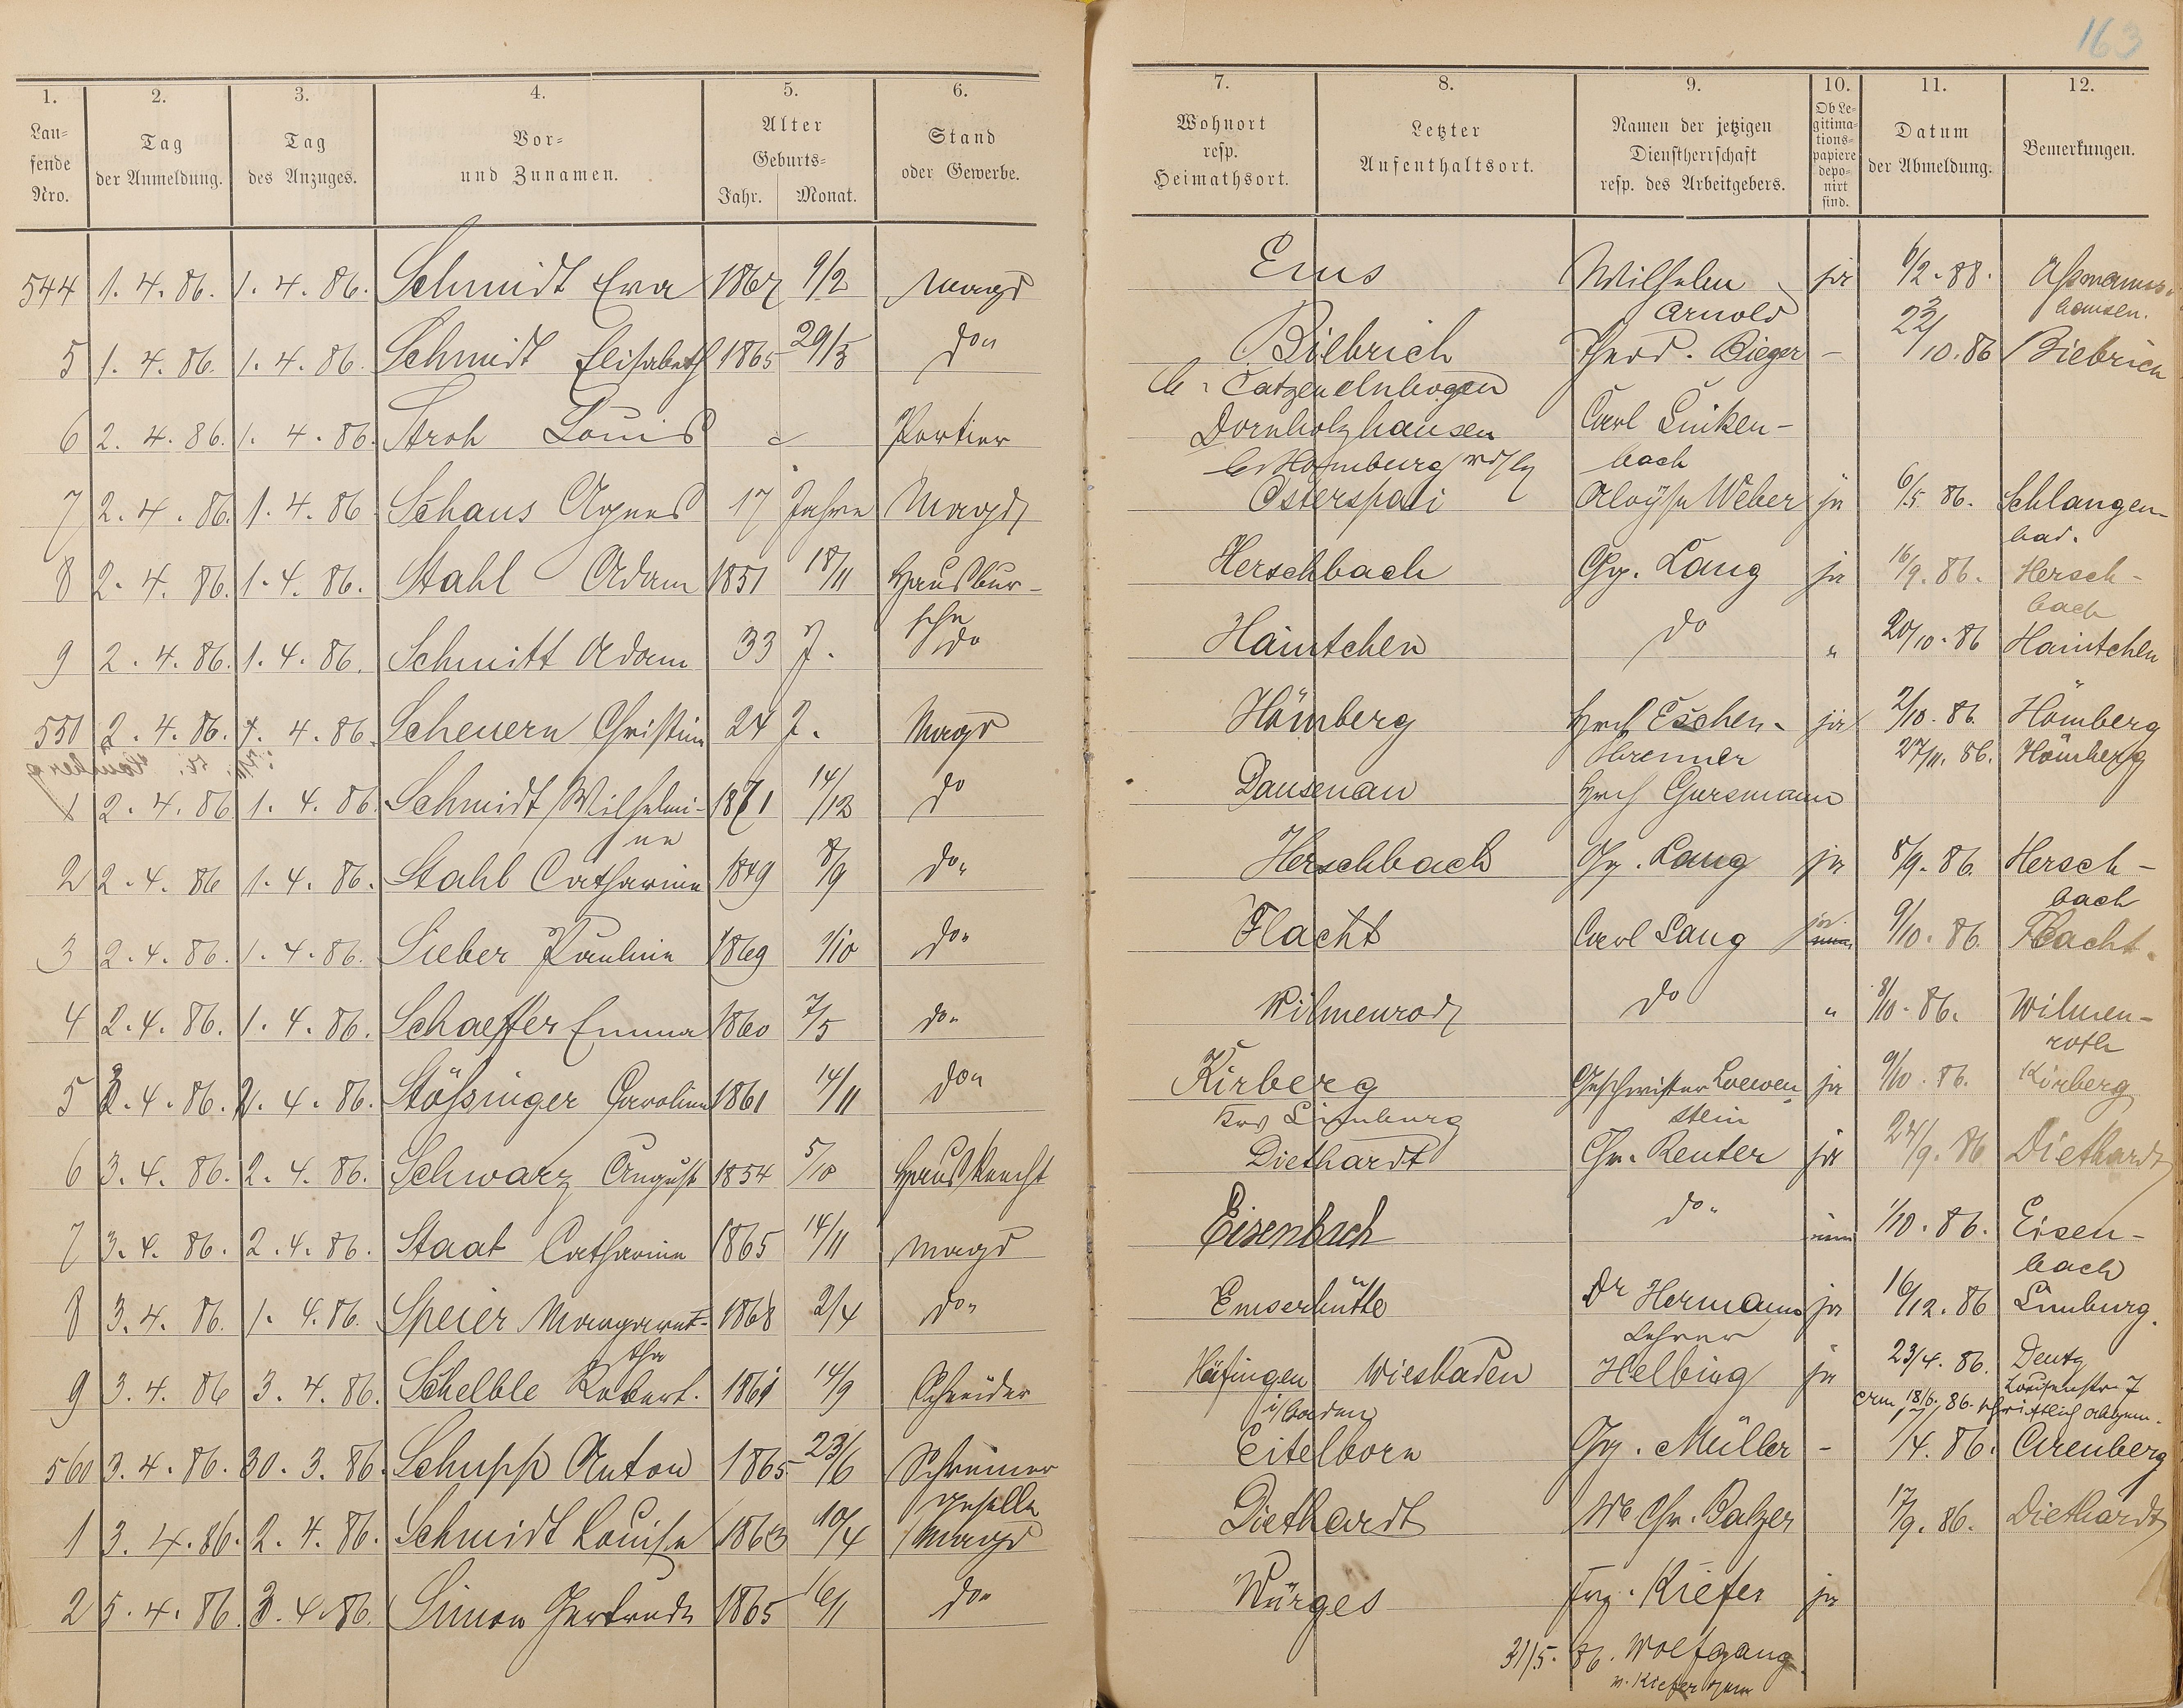 163
1. 2. 3. 4. 5. 6. 7. 8. 9. 10. 11. 12.
Lau-
fende
Nro.
Tag
der Anmeldung.
Tag
des Anzuges.
Vor-
und Zunamen.
Alter
Geburts-
Jahr. Monat.
Stand
oder Gewerbe.
Wohnort
resp.
Heimathsort.
Letzter
Aufenthaltsort.
Namen der jetzigen
Dienstherrschaft
resp. des Arbeitgebers.
Ob Le-
gitima-
tions-
papiere
depo-
nirt
sind.
Datum
der Abmeldung.
Bemerkungen.
544 1. 4. 86. 1. 4. 86. Schmidt Eva 1867 9/2 Magd Ems Wilhelm ja 6/2. 88. Aßmanns-
Arnold hausen.
5 1. 4. 86. 1. 4. 86. Schmidt Elisabeth 1865 29/3 do Biebrich Bieger - 22/10. 86 Biebrich
Catzenelnbogen
6 2. 4. 86. 1. 4. 86. Stroh Louis Portier Dornholzhausen Carl Linken-
b. Homburg bach
7 2. 4. 86. 1. 4. 86 Schaus Agnes 17 Jahre Magd Osterspai Aloÿs Weber ja 6/5. 86. Schlangen-
bad.
8 2. 4. 86. 1. 4. 86. Stahl Adam 1851 18/11 Hausbur- Herschbach Gg. Lang ja 16/9. 86. Hersch-
sche bach
9 2. 4. 86. 1. 4. 86. Schmitt Adam 33 J. do Haintchen do " 20/10. 86 Haintchen
551 2. 4. 86. 1. 4. 86. Scheuern Christine 24 J. Magd Hömberg Hrch Eschen- ja 2/10. 86. Hömberg
brenner 27/11. 86. Hömberg
1 2. 4. 86 1. 4. 86. Schmidt Wilhelmi- 1871 14/12 do Dausenau Hrch Gursmann
ne
2 2. 4. 86 1. 4. 86. Stahl Catharine 1849 8/9 do Herschbach Gg. Lang ja 8/9. 86. Hersch-
bach
3 2. 4. 86. 1. 4. 86. Sieber Pauline 1869 1/10 do Flacht Carl Lang ja 9/10. 86. Flacht.
4 2. 4. 86. 1. 4. 86. Schaeffer Emma 1860 7/5 do Wilmenrod do " 8/10. 86. Wilmen-
roth
5 2. 4. 86. 2. 4. 86. Stößinger Caroline 1861 14/11 do Kirberg Geschwister Loewen ja 9/10. 86. Kirberg
Krs Limburg stein
6 3. 4. 86. 2. 4. 86. Schwarz August 1854 5/10 Hausknecht Diethardt Chr. Reuter ja 24/9. 86 Diethardt
7 3. 4. 86. 2. 4. 86. Staat Catharine 1865 14/11 Magd Eisenbach do 1/10. 86. Eisen-
bach
8 3. 4. 86. 1. 4. 86. Speier Margaret- 1868 2/4 do Emserhütte Dr Hermann ja 16/12. 86 Limburg.
tha Lehrer
9 3. 4. 86 3. 4. 86. Schelble Robert. 1861 14/9 Schneider Häfingen Wiesbaden Helbing ja 23/4. 86. Deutz
i/baden Louisenstr. 7
am 18/6. 86. schriftlich
560 3. 4. 86. 30. 3. 86. Schupp Anton 1865 23/6 Schreiner Eitelborn Gg. Müller - /4. 86. Arenberg
geselle
1 3. 4. 86. 2. 4. 86. Schmidt Louise 1863 10/4 Magd Diethardt We Chr. Balzer 17/9. 86. Diethardt
2 5. 4. 86. 3. 4. 86. Simon Gertrude 1865 16/1 do Würges Frz. Kiefer ja
31/5. 86. Wolfgang